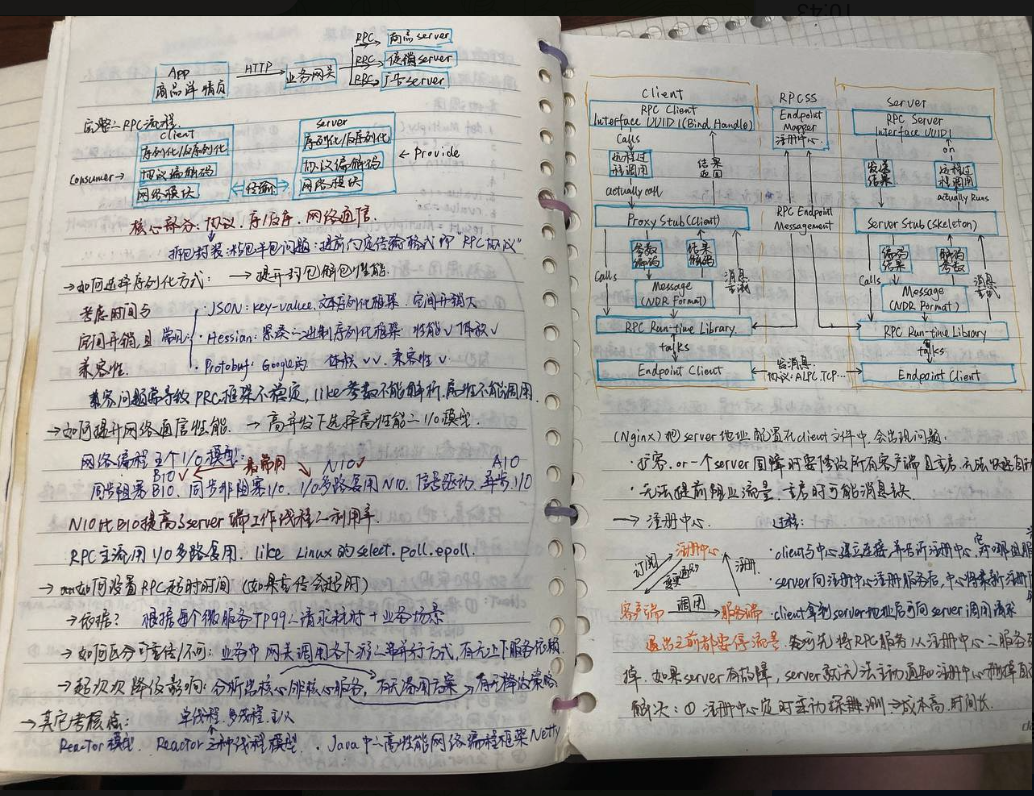 App
商品详情页
HTTP
业务网关
RPC
商品server
RPC
促销server
RPC
广告server
完整RPC流程
client
序列化/反序列化
协议编解码
网络模块
Consumer→
传输
server
序列化/反序列化
协议编解码
网络模块
← Provide
核心部分:协议、序/反序、网络通信.
拆包封装粘包半包问题:提前约定传输格式即"RPC协议"
→如何选择序列化方式: →提升封包解包性能
考虑时间与
空间开销,且
兼容性.
常用
·JSON: key-value. 文本序列化框架. 空间开销大
·Hessian: 紧凑二进制序列化框架 性能✓ 体积✓
·Protobuf: Google的 体积 ✓✓. 兼容性 ✓.
兼容问题会导致PRC框架不稳定, like参数不能解析,属性不能调用.
→如何提升网络通信性能. → 高并发下选择高性能 I/O模型.
网络编程五个I/O模型:
最常用
BIO✓
NIO✓
AIO
同步阻塞BIO、同步非阻塞I/O、I/O多路复用NIO、信号驱动、异步I/O
NIO比BIO提高了server端工作线程利用率
RPC主流用I/O多路复用. like Linux的select.poll.epoll.
→ 如何设置RPC超时时间 (如果重传会超时)
→依据? 根据每个微服务TP99请求耗时+业务场景
→如何区分可重传/不可: 业务中网关调用各下游串并行方式,有无上下服务依赖
降低影响: 分析出核心/非核心服务, 有无备用方案→有无降级策略
→其它考核点:
单线程,多线程,主从
Reactor模型 Reactor三种线程模型. ·Java中高性能网络编程框架Netty
Client
RPC Client
Interface UUID (Bind, Handle)
Calls
远程过程调用
结果返回
actually call
Proxy Stub (Client)
参数编码
结果解码
Calls
Message
(NDR Format)
消息
RPC Run-time Library
talks
Endpoint Client
RPCSS
Endpoint
Mapper
注册中心.
RPC Endpoint
Messagement
发消息
协议:ALPC,TCP...
Server
RPC Server
Interface UUID1
on
发送结果
远程过程调用
actually Runs
Server Stub (skeleton)
编码结果
解码参数
Calls
Message
(NDR Format)
消息
RPC Run-time Library
talks
Endpoint Client
(Nginx)把server地址配置在client文件中,会出现问题:
·扩容.or一个server回降时要修改所有客户端且重启,
·无法提前阻止流量,重启时可能消息丢
→ 注册中心. 过程:
注册中心
订阅
注册
客户端
调用
服务端
·client与中心建立连接,并告诉注册中心,
·server向注册中心注册服务后,中心将最新注册
·client拿到server地址后可向server调用请求
退出之前都要停流量
先将RPC服务从注册中心服务
掉. 如果server有故障, server无法主动通知注册中心
解决:① 注册中心定时主动探测→成本高,时间长.